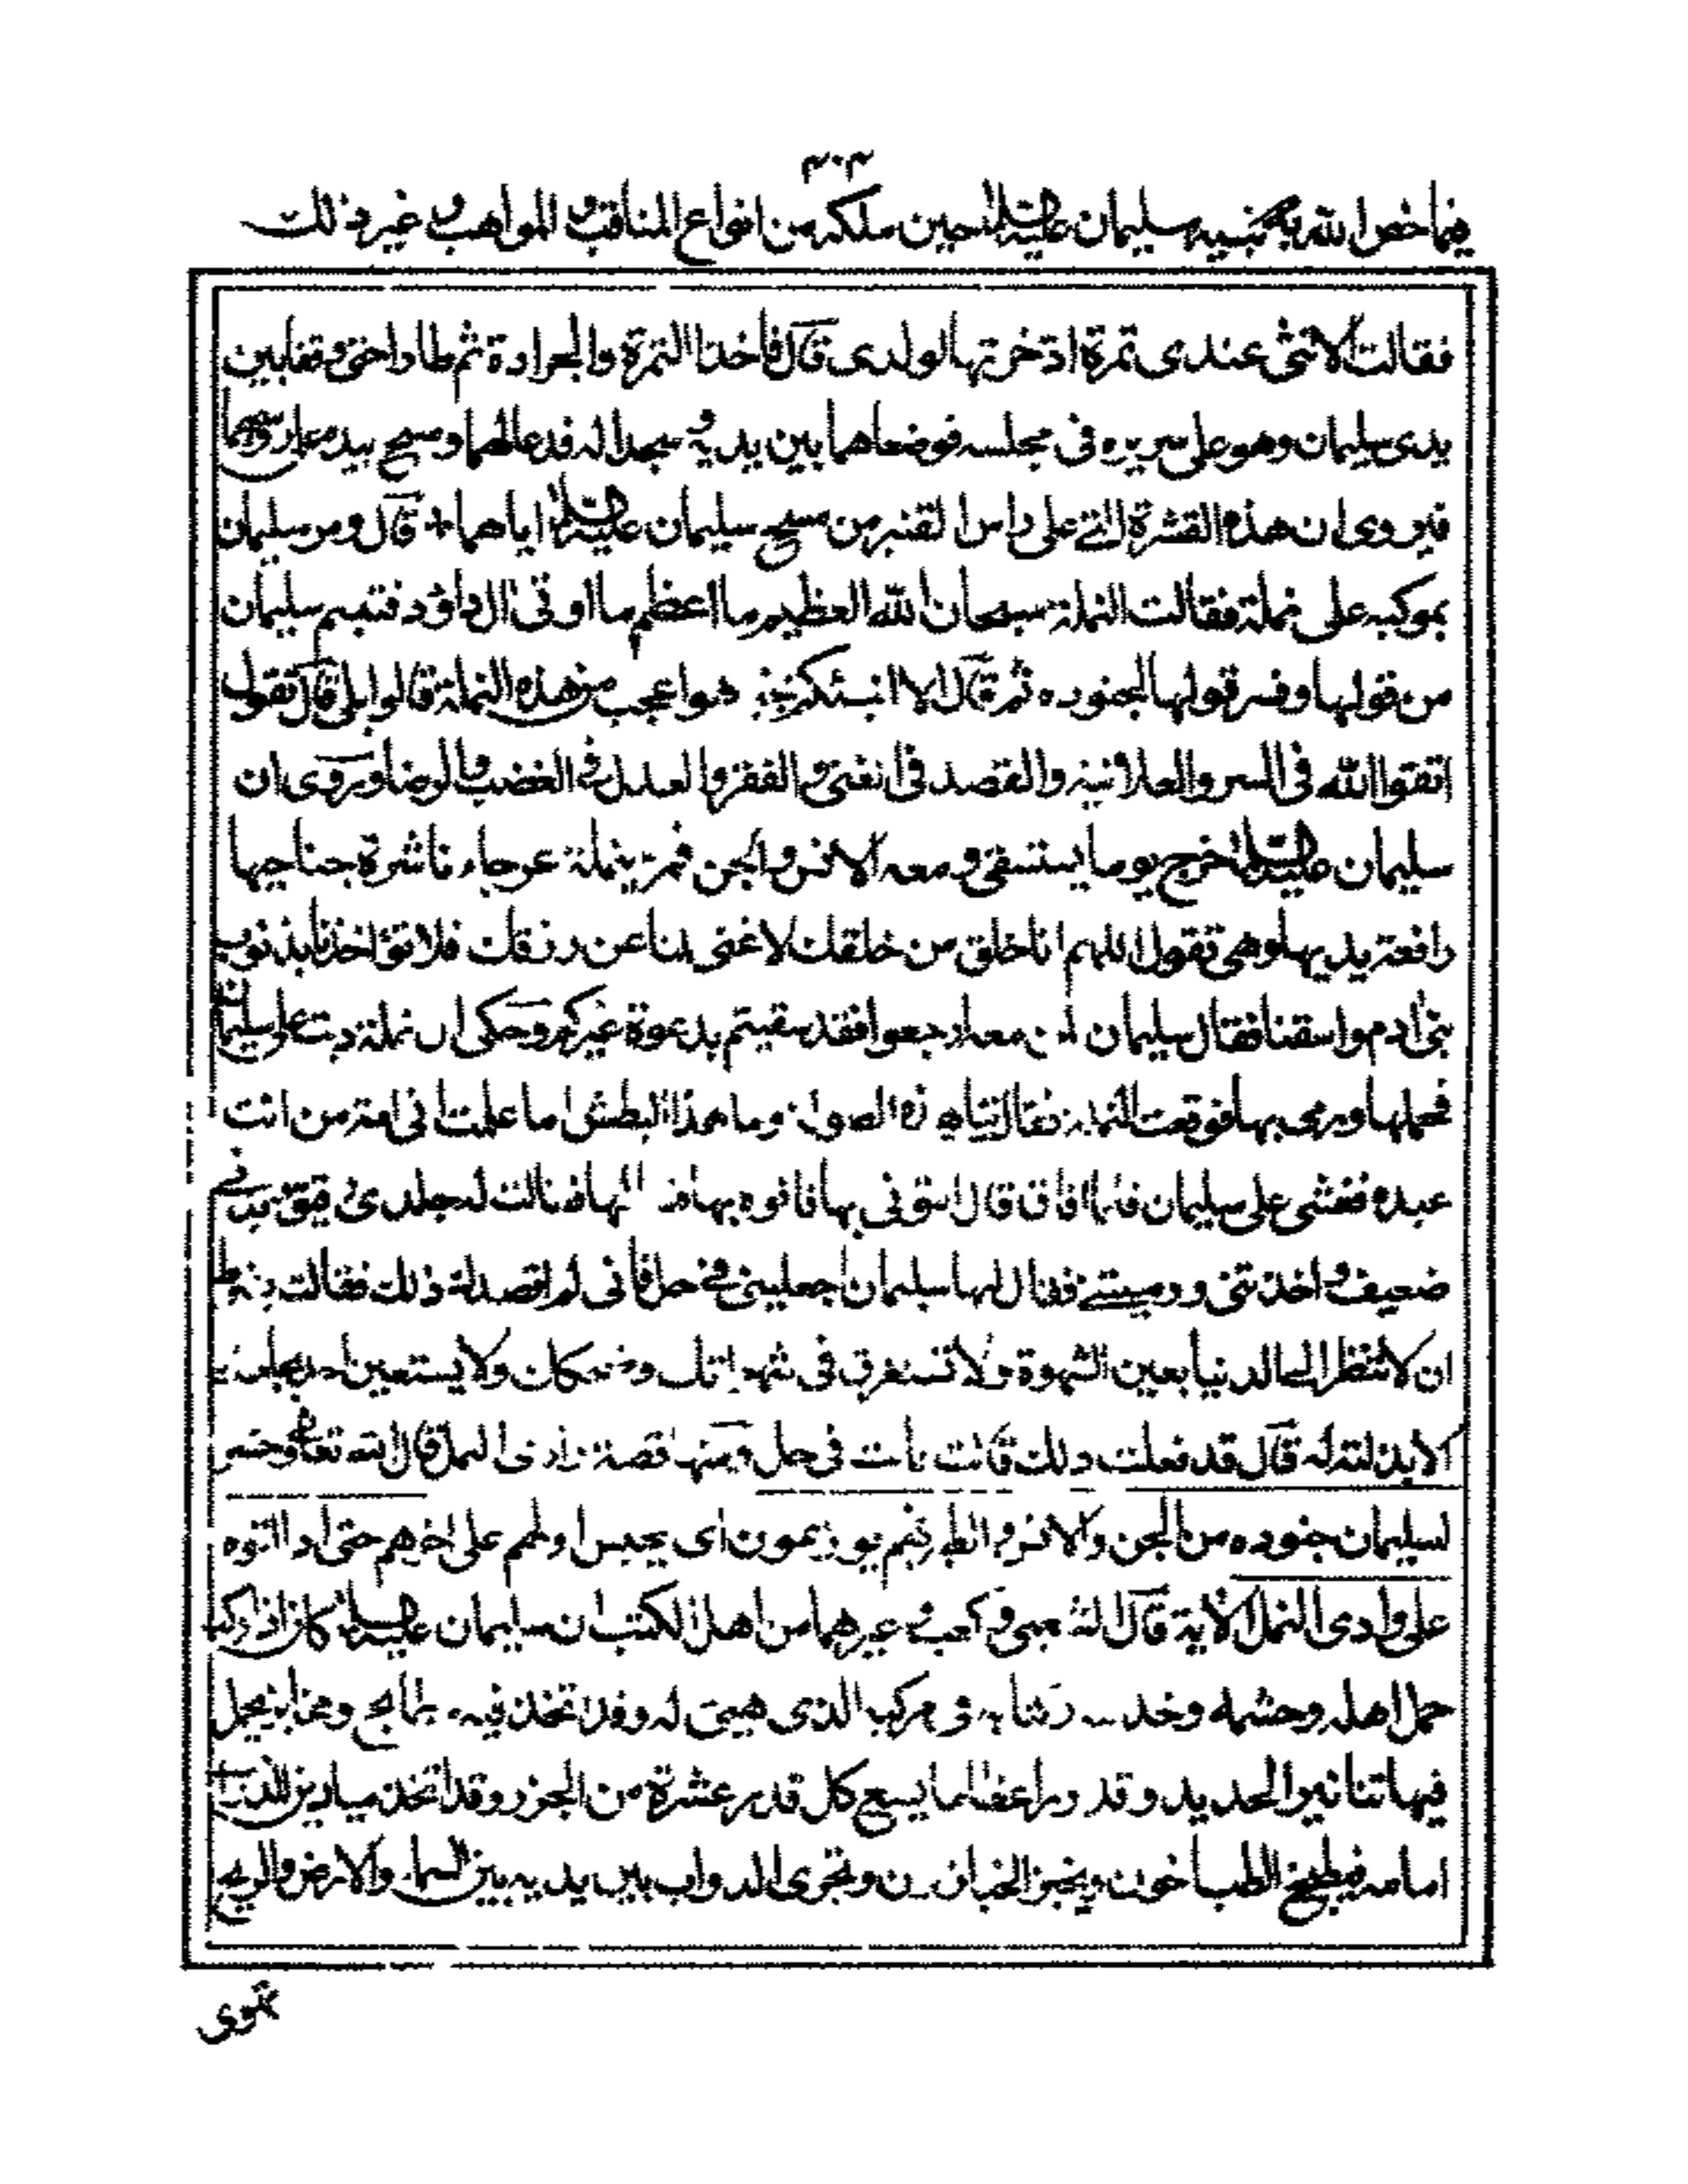 ٣٠٣
فيما خص الله به نبيه سليمان عليه السلام حين ملكه من انواع المناقب والمواهب وغير ذلك
فقالت الانثى عندى تمرة ادخرتها لولدى قال فاخذا التمرة والجرادة ثم طارا حتى وقفا بين
يدى سليمان وهو على سريره فى مجلسه فوضعاهما بين يديه وسجدا له فدعا لهما ومسح بيده على رءوسهما
فيروى ان هذه القشرة التى على راس القنبر من مسح سليمان عليه السلام اياهما * قال ومر سليمان
بموكبه على نملة فقالت النملة سبحان الله العظيم ما اعظم ما اوتى ال داؤد فتبسم سليمان
من قولها وفسر قولها لجنوده ثم قال الا انبئكم هو اعجب من هذه النملة قالوا بلى قال تقول
اتقوا الله فى السر والعلانية والقصد فى الغنى والفقر والعدل فى الغضب والرضا وروى ان
سليمان عليه السلام خرج يوما يستسقى ومعه الانس والجن فمر بنملة عرجاء ناشرة جناحيها
رافعة يديها وهى تقول اللهم انا خلق من خلقك لا غنى لنا عن رزقك فلا تؤاخذنا بذنوب
بنى ادم واسقنا فقال سليمان لمن معه ارجعوا فقد سقيتم بدعوة غيركم وحكى ان نملة دبت على سليمان
فحملها ورمى بها فوقعت النملة فقالت ما هذه الصولة وما هذا البطش اما علمت انى امة من انت
عبده فغشى على سليمان فلما افاق قال ائتونى بها فاتوه بها فقالت له جلدى رقيق وبدنى
ضعيف واخذتنى ورميتنى فقال لها سليمان اجعلينى فى حل فانى لم اقصد لك ذلك فقالت بشرط
ان لا تنظر الى الدنيا بعين الشهوة ولا تستغرق فى شهواتك وضحكك ولا يستعين احد بجاهك
الا بذلته له قال قد فعلت ذلك قالت انت فى حل ومنها قصة وادى النمل قال الله تعالى وحشر
لسليمان جنوده من الجن والانس والطير فهم يوزعون اى يحبس اولهم على اخرهم حتى اذا اتوه
على وادى النمل الاية قال الشعبى وكعب وغيرهما من اهل الكتب ان سليمان عليه السلام كان اذا ركب
حمل اهله وحشمه وخدمه وكتابه فى مركبه الذى هيئ له وقد اتخذ فيه مطابخ ومخابز يحمل
فيها تنانير الحديد وقدورا عظاما يسع كل قدر عشرة من الجزر وقد اتخذ ميادين للدواب
امامه فيطبخ الطباخون ويخبز الخبازون وتجرى الدواب بين يديه بين السماء والارض والريح
تهوى